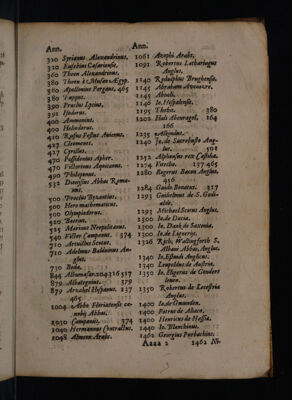 Ann.
320 Syrianus Alexandrinus,
320 Eusebius Cæsariensis,
360 Theon Alexandrinus,
380 Theon è Musæo Ægyp.
380 Apollonius Pergæus, 465
380 Pappus.
390 Proclus Lycius,
391 Isidorus.
400 Ammonius,
400 Heliodorus.
410 Rufus Festus Avienus,
427 Cleomedes,
427 Cyrillus.
470 Possidonius Apher.
470 Victorinus Aquitanus.
490 Philoponus.
532 Dionysius Abbas Romanus,
500 Proclus Byzantius.
500 Hero mathematicus.
500 Olympiodorus.
520 Boetius.
525 Marinus Neapolitanus.
540 Victor Campanus. 374
710 Arnulthus
710 Adelmus Balduinus Anglus.
730 Beda.
844 Albumasar. 204 316 517
879 Albategnius. 379
879 Arzahel Hispanus. 137
465
1004 Abbo Floriatensis cœnobij Abbas.
1030 Campanus. 374
1040 Hermannus Contractus.
1048
Ann.
1061 Azophi Arabs,
1092 Robertus Lotharingus
Anglus,
1140 Rodulphus Brughensis.
1145 Abraham Avenezre.
1145
1146 Io. Hispalensis.
1195 Thebit. 380
1202 Hali Abenragel. 164
166
1235
1240 Io. de Sacrobusto Anglus. 501
1252 Alphonsus rex Castellæ.
1274 Vitello. 137 465
1280 Rogerus Bacon Anglus,
456
1284 Guido Bonatus. 317
1293 Guilielmus de S.
1295 Michael Scotus Anglus.
1300 Io. de Dacia.
1300 Io. Danck de Saxonia.
1300 Io. de Ligneriis.
1326 Rich. Walingforth S.
Albani Abbas, Anglus.
1340 Io. Estuidi Anglicus.
1340 Leopoldus de Austria.
1350 Io. Eligerus de
1350 Robertus de Lecestria
Anglus.
1400 Io. de Gmunden.
1400 Petrus de Aliaco.
1400 Henricus de Hassia.
1440 Io. Blanchinus.
1462 Georgius Purbachius.
Aaaa 2
1462 Ni-